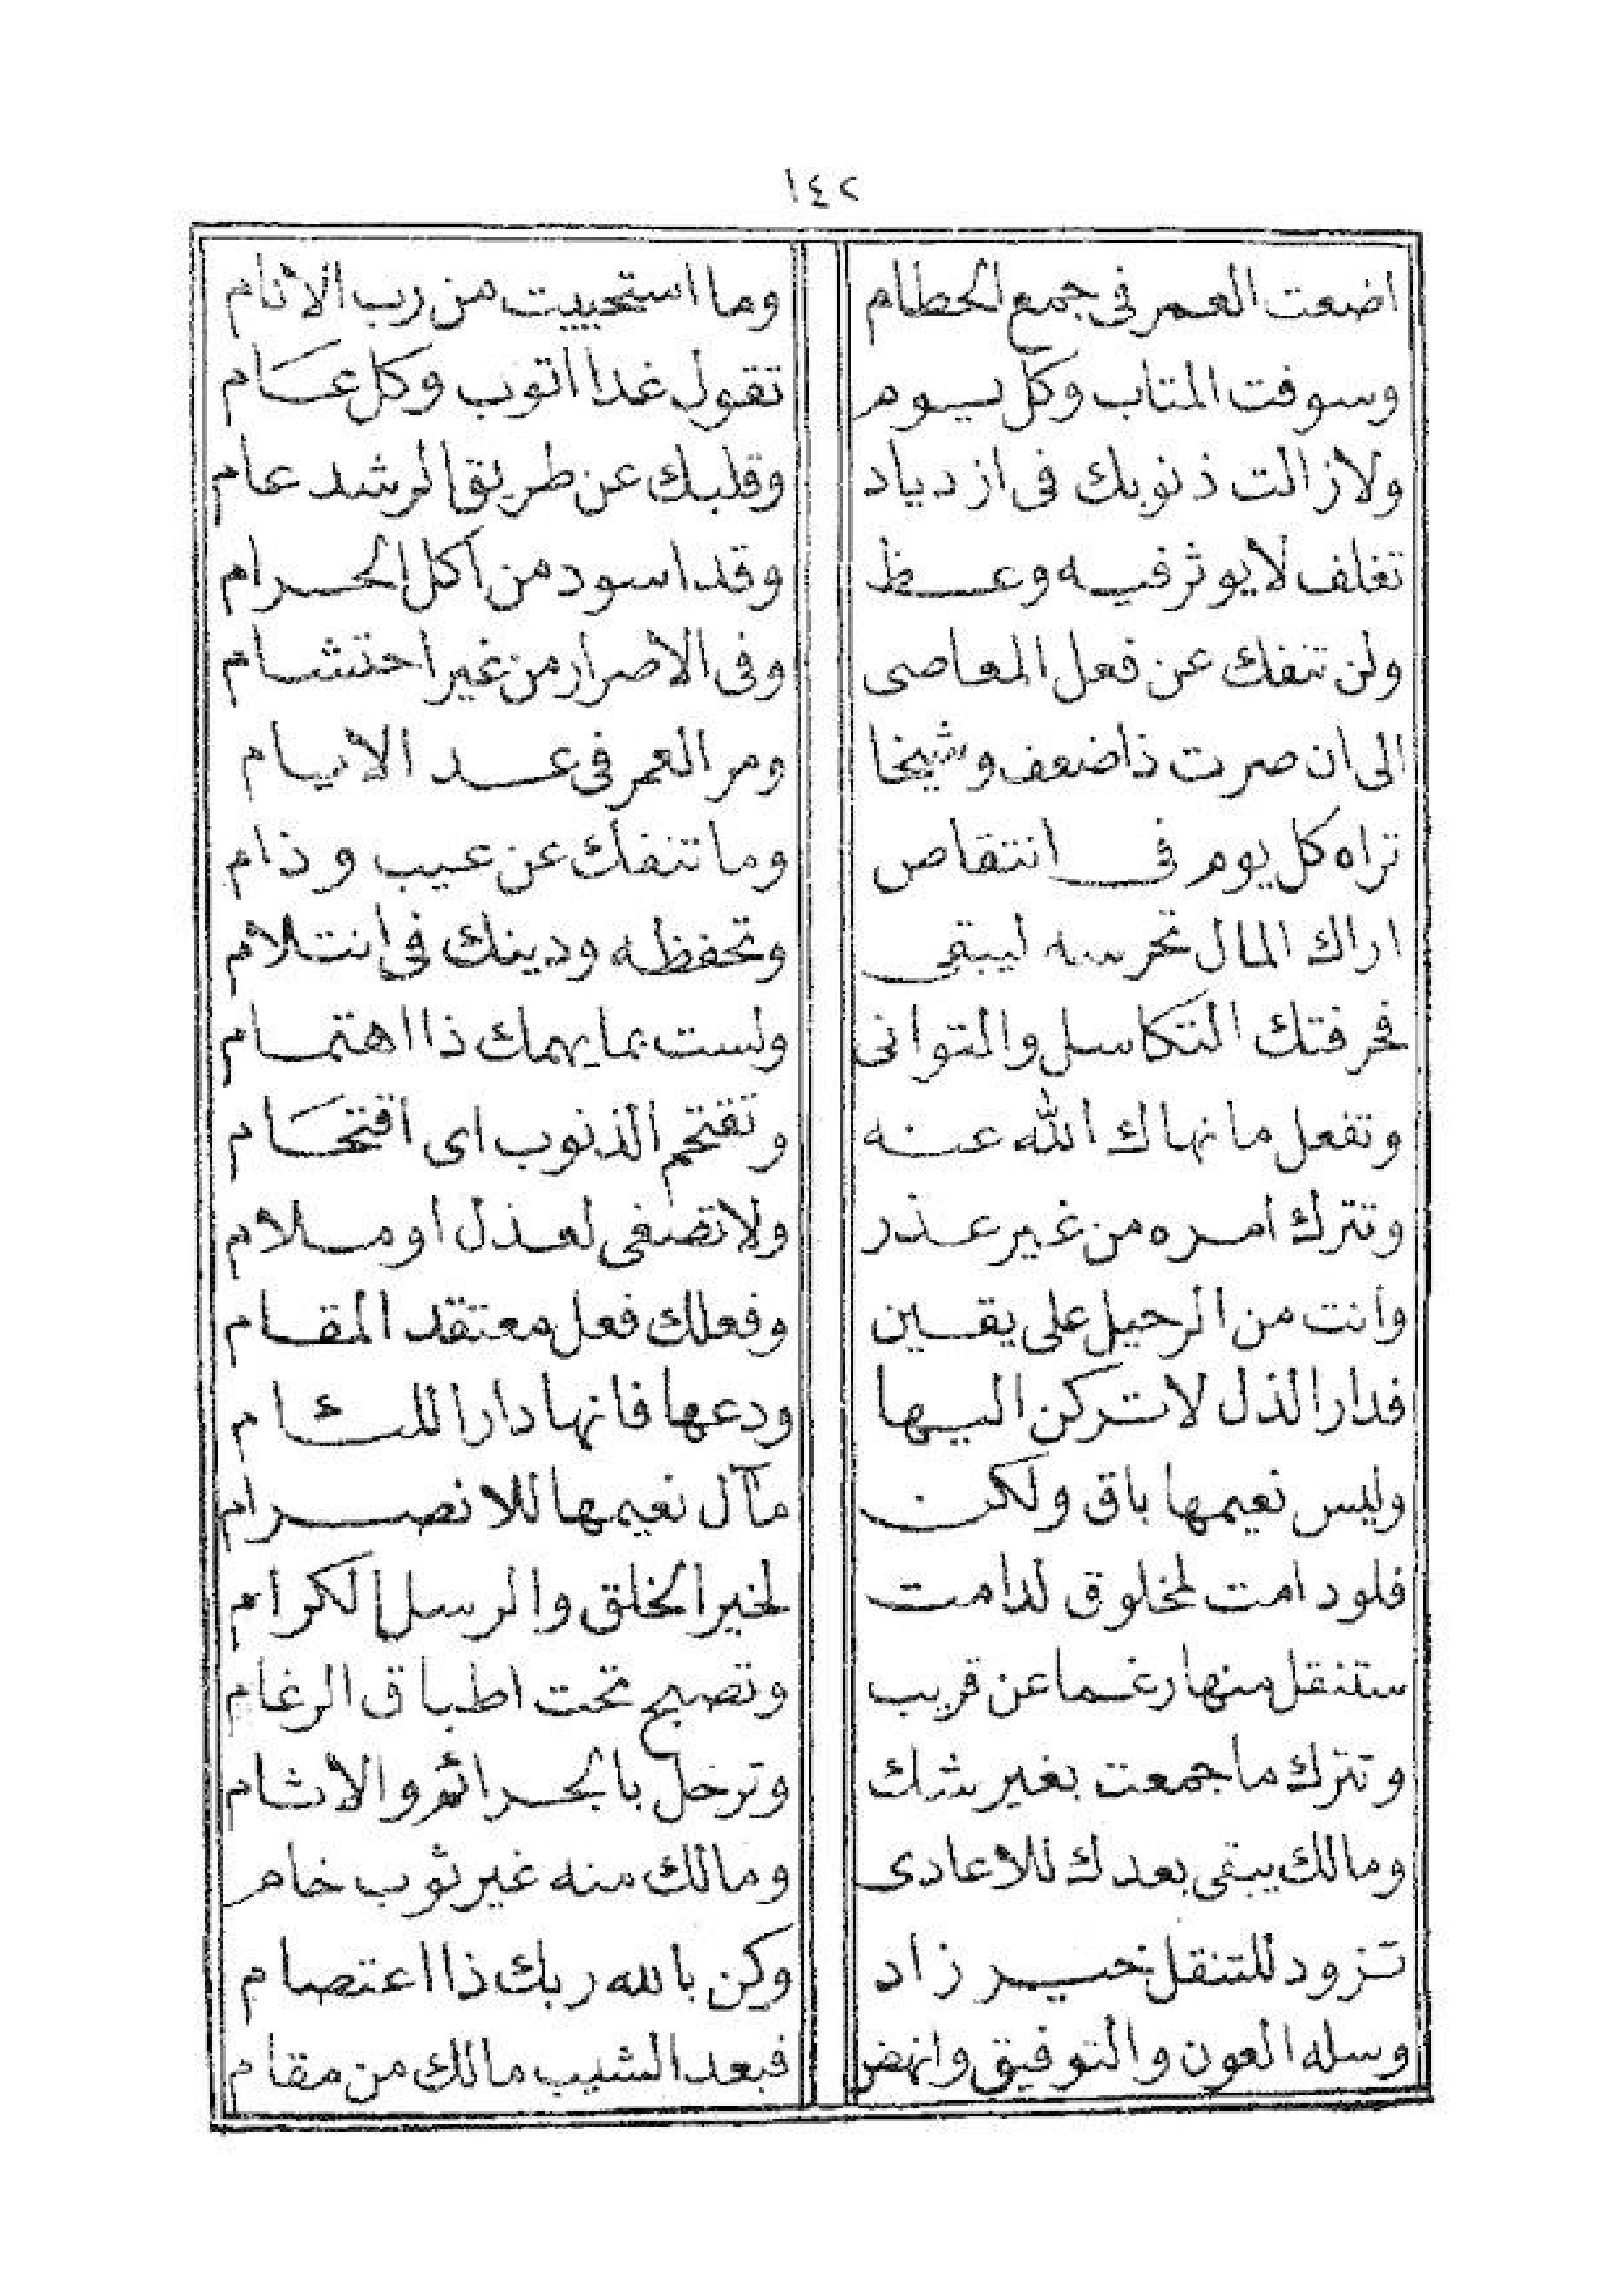 ١٤٢
اضعت العمر فى جمع الحطام وما استحييت من رب الأنام
وسوفت المتاب وكل يوم تقول غدا اتوب وكل عام
ولازالت ذنوبك فى ازدياد وقلبك عن طريق الرشد عام
تغلف لا يوثر فيه وعظ وقد اسود من أكل الحرام
ولن تنفك عن فعل المعاصى وفى الاصرار من غير احتشام
الى ان صرت ذا ضعف وشيخا ومر العمر فى عد الأيام
تراه كل يوم فى انتقاص وما تنفك عن عيب وذام
اراك المال تحرسه ليبقى وتحفظه ودينك فى انتلام
فحرفتك التكاسل والتوانى ولست بما يهمك ذا اهتمام
وتفعل ما نهاك الله عنه وتقتحم الذنوب اى اقتحام
وتترك امره من غير عذر ولا تصغى لعذل او ملام
وأنت من الرحيل على يقين وفعلك فعل معتقد المقام
فدار الذل لا تركن اليها ودعها فانها دار اللئام
وليس نعيمها باق ولكن مآل نعيمها للانصرام
فلو دامت لمخلوق لدامت لخير الخلق والرسل الكرام
ستنقل منها رغما عن قريب وتصبح تحت اطباق الرغام
وتترك ما جمعت بغير شك وترحل بالجرائم والاثام
ومالك يبقى بعدك للاعادى ومالك منه غير ثوب خام
تزود للتنقل خير زاد وكن بالله ربك ذا اعتصام
وسله العون والتوفيق وانهض فبعد الشيب مالك من مقام